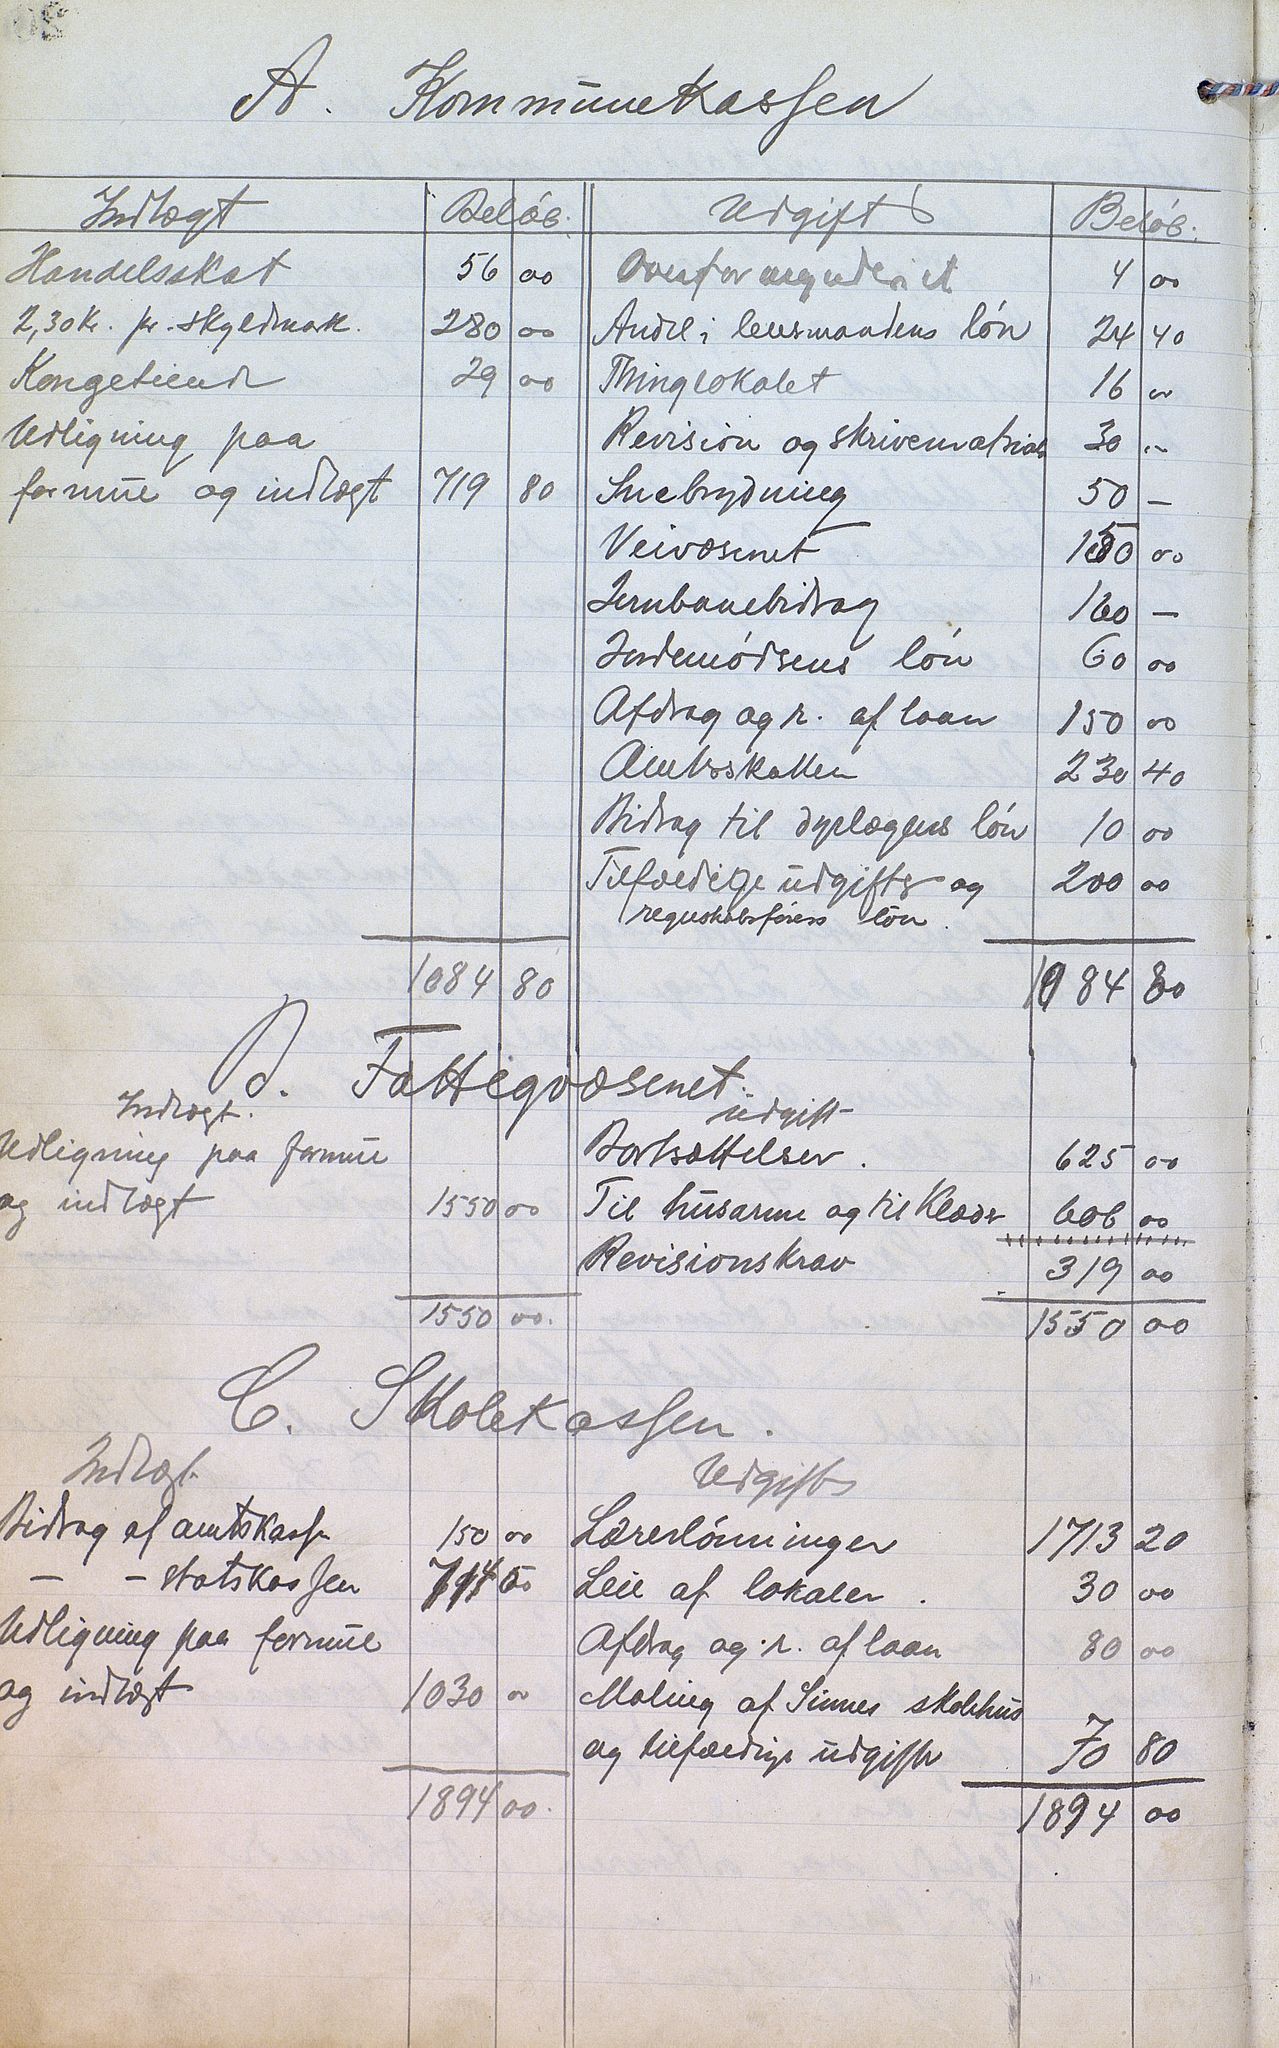 A. Kommunekassen
Indtægt Beløb. Udgift Beløb.
Handelsskat 56 00 Overformynderiet 4 00
2,30 Kr. pr. skyldmark. 280 00 Andel i lensmandens løn 24 40
Kongetiende 29 00 Thinglokalet 16 00
Udligning paa Revision og skrivematriale 30 00
formue og indtægt 719 80 Snebrydning 50 —
Veivæsenet 150 00
Jernbanebidrag 160 —
Jordemødsens løn 60 00
Afdrag og r. af laan 150 00
Amtsskatten 230 40
Bidrag til dyrlægens løn 10 00
Tilfældige udgifter og 200 00
regnskabsførers løn.
1084 80 1084 80
B. Fattigvæsenet.
Indtægt. Udgift
Udligning paa formue Bortsættelser. 625 00
og indtægt 1550 00 Til husarme og til Klæder 606 00
Revisionskrav 319 00
1550 00. 1550 00
C. Skolekassen.
Indtægt Udgifter
Bidrag af amtskassen 150 00 Lærerlønninger 1713 20
— — statskassen 714 00 Leie af lokaler. 30 00
Udligning paa formue Afdrag og r. af laan 80 00
og indtægt 1030 00 Maling af Sinnes skolehus
og tilfældige udgifter 70 80
1894 00. 1894 00